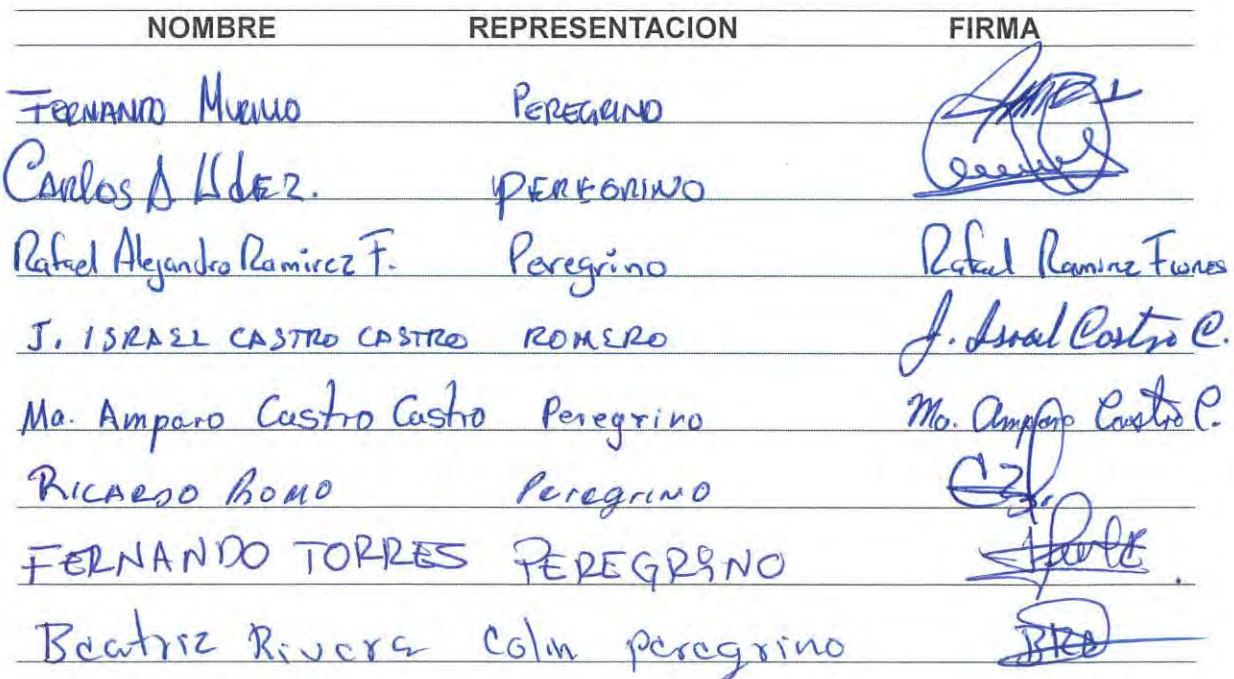 NOMBRE REPRESENTACION FIRMA
FERNANDO MURILLO PEREGRINO
CARLOS A PEREGRINO
Rafael Alejandro Ramirez F. Peregrino Rafael Ramirez Flores
J. ISRAEL CASTRO CASTRO ROMERO J. Israel Castro C.
Ma. Amparo Castro Castro Peregrino Ma. Amparo Castro C.
RICARDO ROMO Peregrino
FERNANDO TORRES PEREGRINO
Beatriz Rivera Colin peregrino BRC